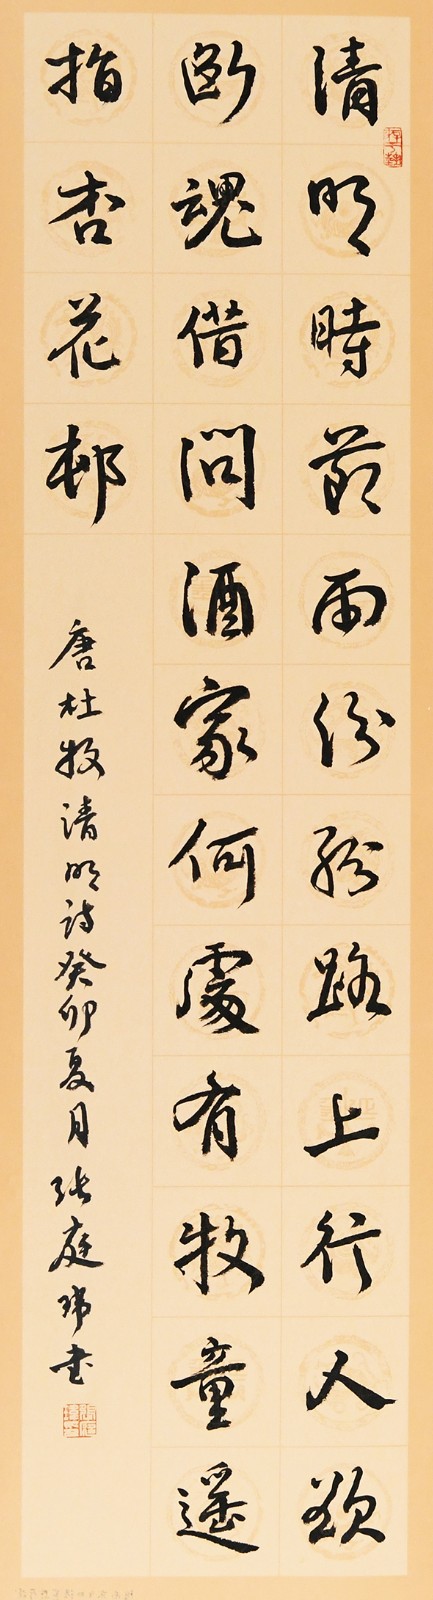 清明時節雨份紛路上行人欲
断魂借問酒家何處有牧童遥
指杏花邨
唐杜牧清明詩癸卯夏月張庭瑋書